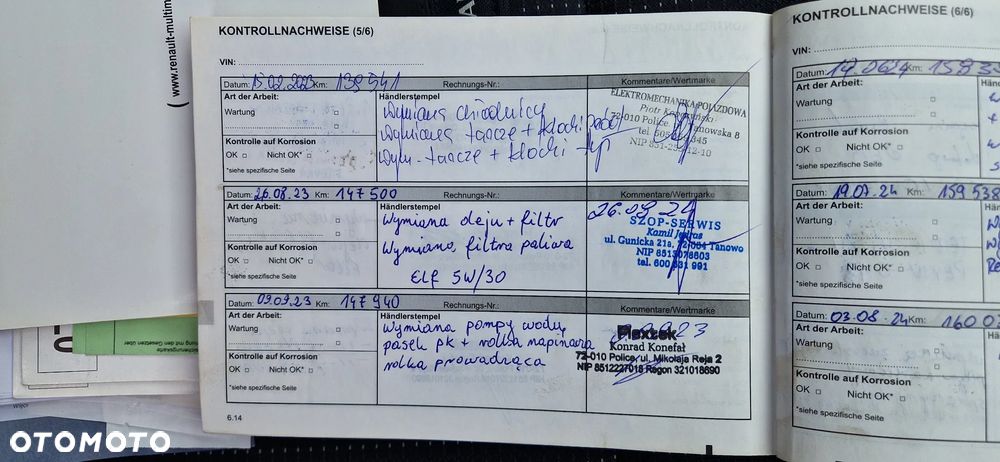 www.renault-multim
KONTROLLNACHWEISE (5/6)
VIN:
Datum: 15.02.2023 Km: 139541 Rechnungs-Nr.: Kommentare/Wertmarke
Art der Arbeit:
Wartung
Händlerstempel
Wymiana chłodnicy
Wymiana tarcze + klocki
Wym. tarcze + klocki tył
ELEKTROMECHANIKA POJAZDOWA
Piotr
72-010 Police, Tanowska 8
tel. 605 345
NIP 851-25 12-10
Kontrolle auf Korrosion
OK Nicht OK*
*siehe spezifische Seite
Datum: 26.08.23 Km: 147500 Rechnungs-Nr.: Kommentare/Wertmarke
Art der Arbeit:
Wartung
Händlerstempel
Wymiana oleju + filtr
Wymiana filtra paliwa
ELF 5W/30
SZOP-SERWIS
Kamil
ul. Gunicka 21a, 72-004 Tanowo
NIP 8513078603
tel. 600 331 991
Kontrolle auf Korrosion
OK Nicht OK*
*siehe spezifische Seite
Datum: 09.09.23 Km: 147940 Rechnungs-Nr.: Kommentare/Wertmarke
Art der Arbeit:
Wartung
Händlerstempel
Wymiana pompy wody
pasek PK + rolka napinara
rolka prowadząca
Flextek
Konrad Konefał
72-010 Police, ul. Mikołaja Reja 2
NIP 8512227018 Regon 321018690
Kontrolle auf Korrosion
OK Nicht OK*
*siehe spezifische Seite
6.14
KONTROLLNACHWEISE (6/6)
VIN:
Datum: Km:
Art der Arbeit:
Wartung
Kontrolle auf Korrosion
OK Nicht OK*
*siehe spezifische Seite
Datum: 19.07.24 Km: 159538
Art der Arbeit:
Wartung
Kontrolle auf Korrosion
OK Nicht OK*
*siehe spezifische Seite
Datum: 03.08.24 Km:
Art der Arbeit:
Wartung
Kontrolle auf Korrosion
OK Nicht OK*
*siehe spezifische Seite
OTOMOTO